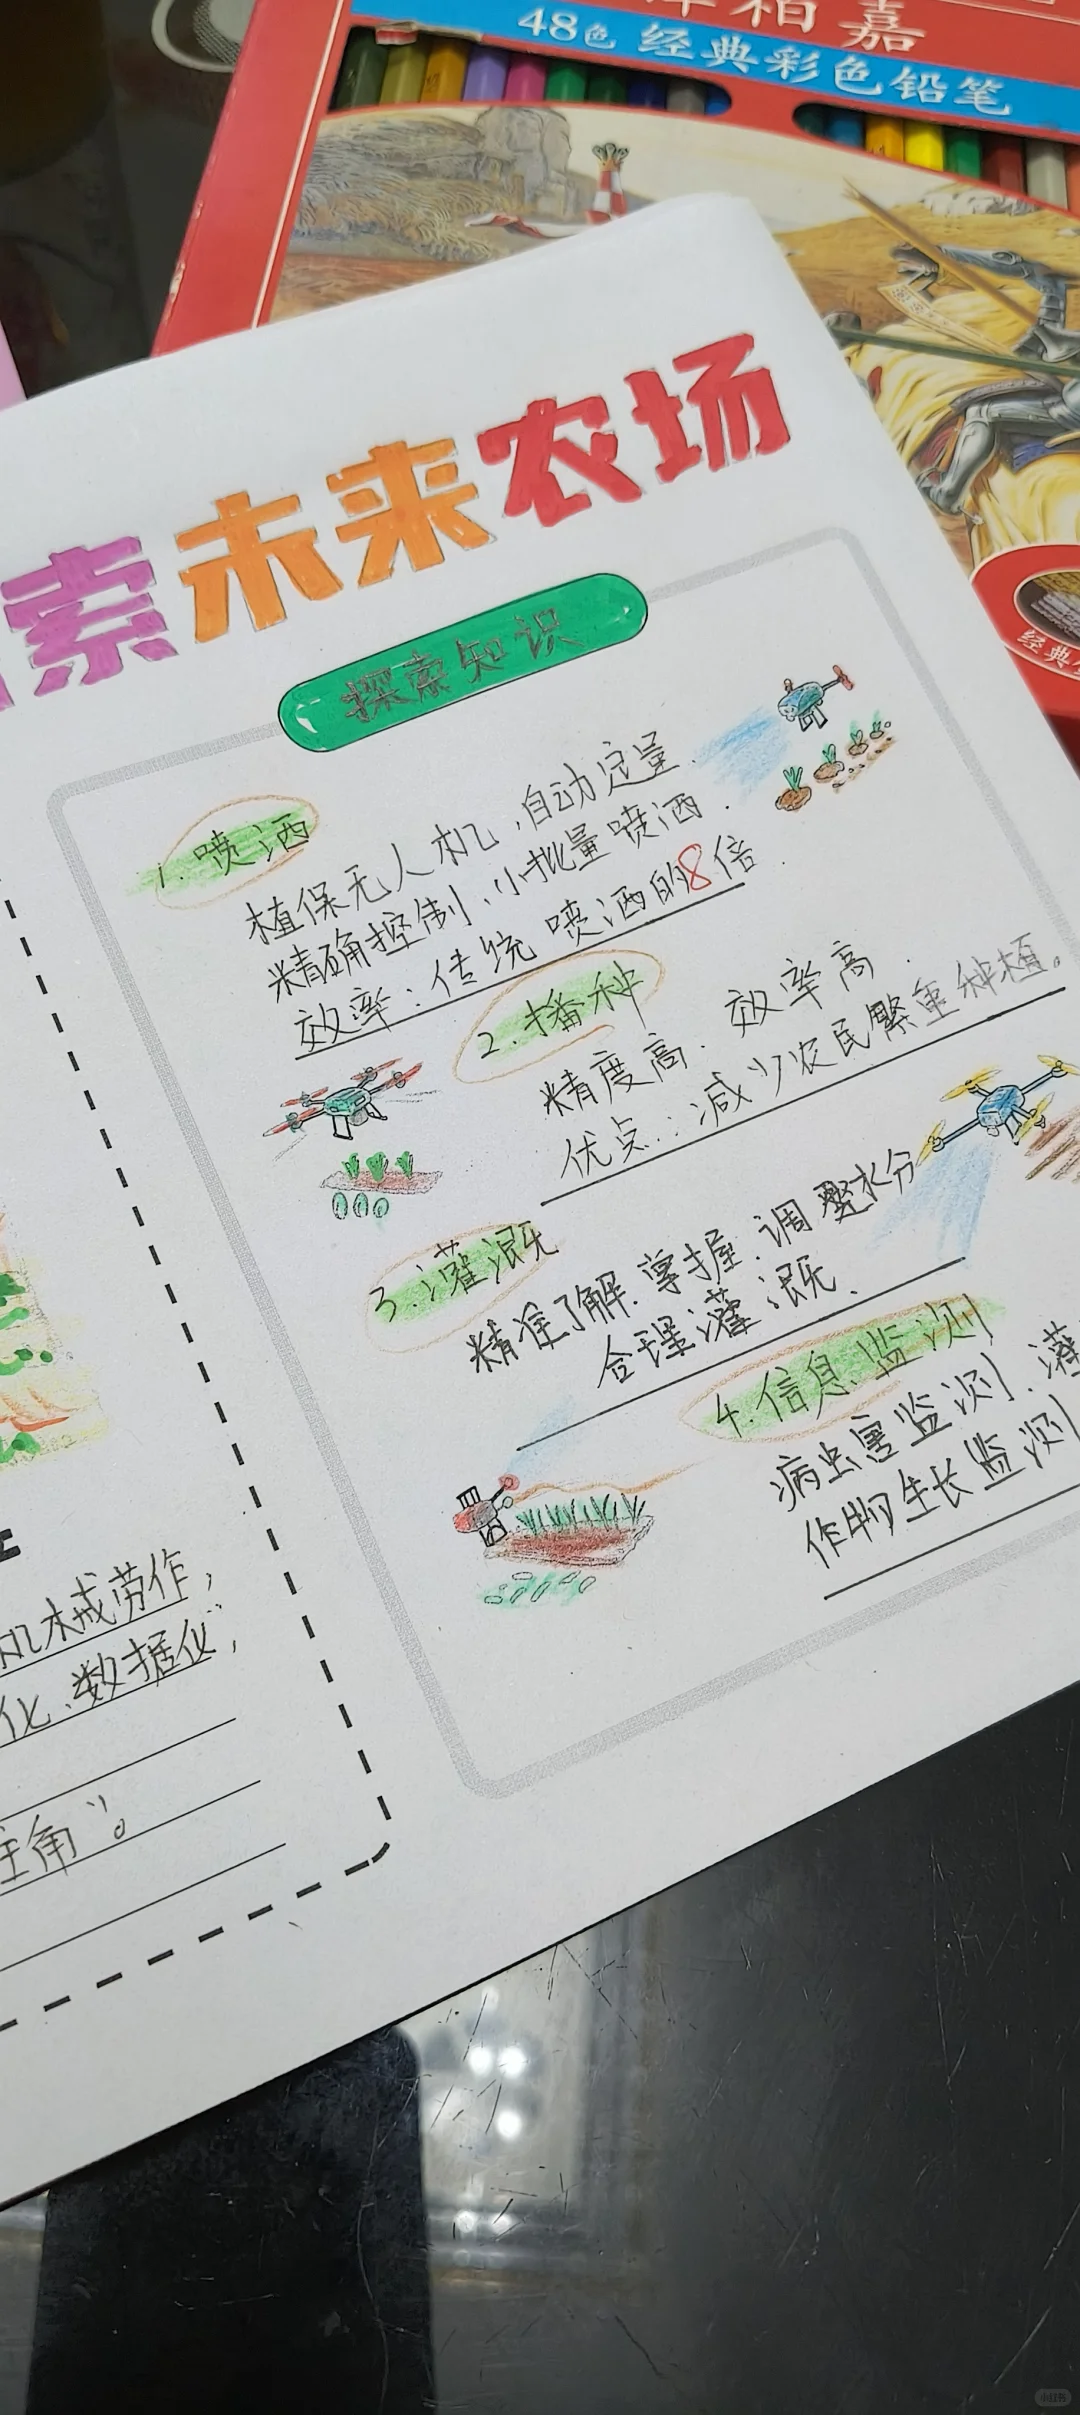 48色 经典彩色铅笔
嘉
经典
索未来农场
探索知识
1.喷洒
植保无人机,自动定量.
精确控制、小批量喷洒.
效率:传统喷洒的8倍.
2.播种
精度高. 效率高.
优点:减少农民繁重种植。
3.灌溉
精准了解.掌握.调整水分
合理灌溉.
4.信息监测
病虫害监测.灌
作物生长监测
机械劳作,
化、数据化",
主角"。
小红书